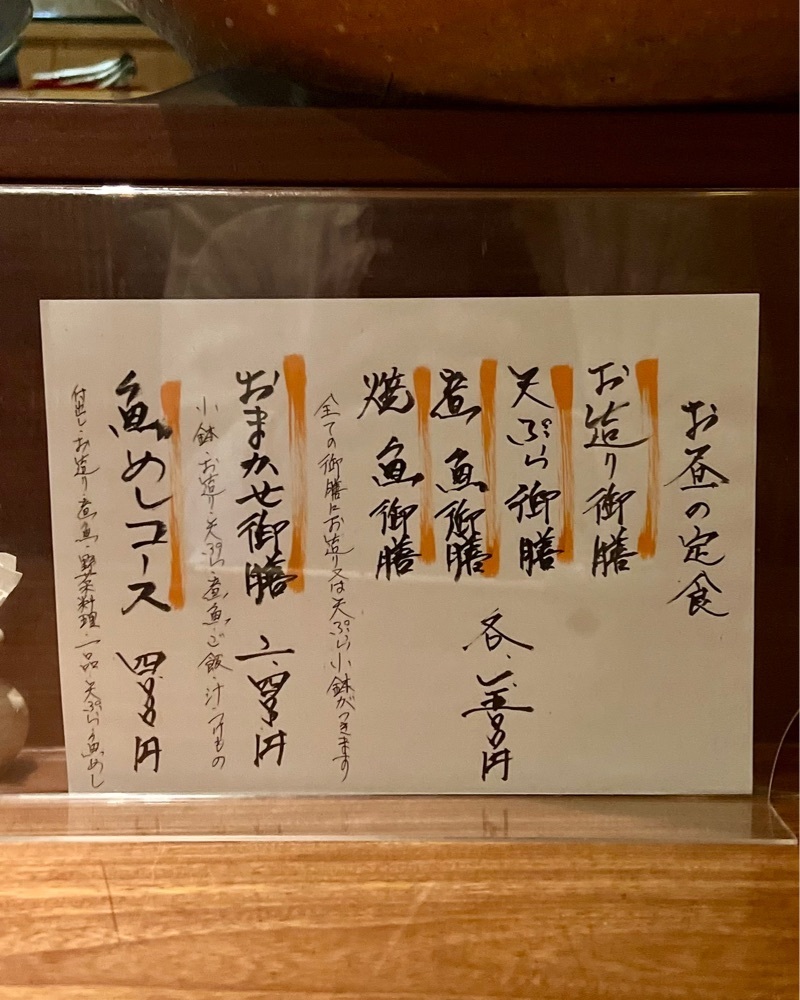 お昼の定食
お造り御膳
天ぷら御膳
煮魚御膳
焼魚御膳
各、円
全ての御膳にお造り又は天ぷら小鉢がつきます
おまかせ御膳 二、四〇〇円
小鉢・お造り・天ぷら・煮魚・ご飯・汁・つけもの
魚めしコース 円
付出し・お造り・煮魚・野菜料理・一品・天ぷら・魚めし